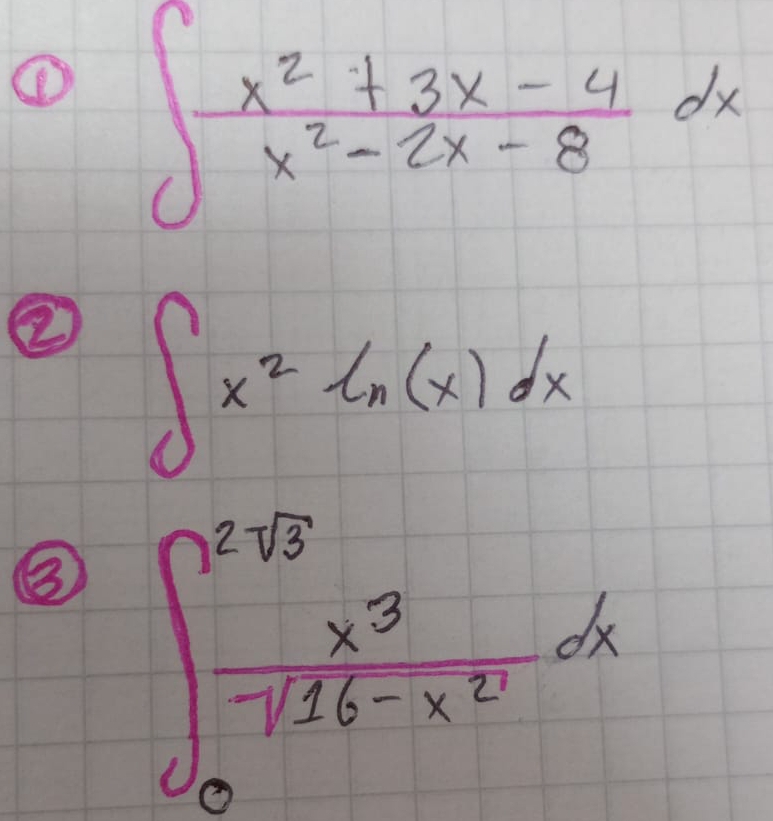 ① ∫ (x² + 3x - 4)/(x² - 2x - 8) dx
② ∫ x² ln(x) dx
③ ∫₀^(2√3) x³/√(16 - x²) dx